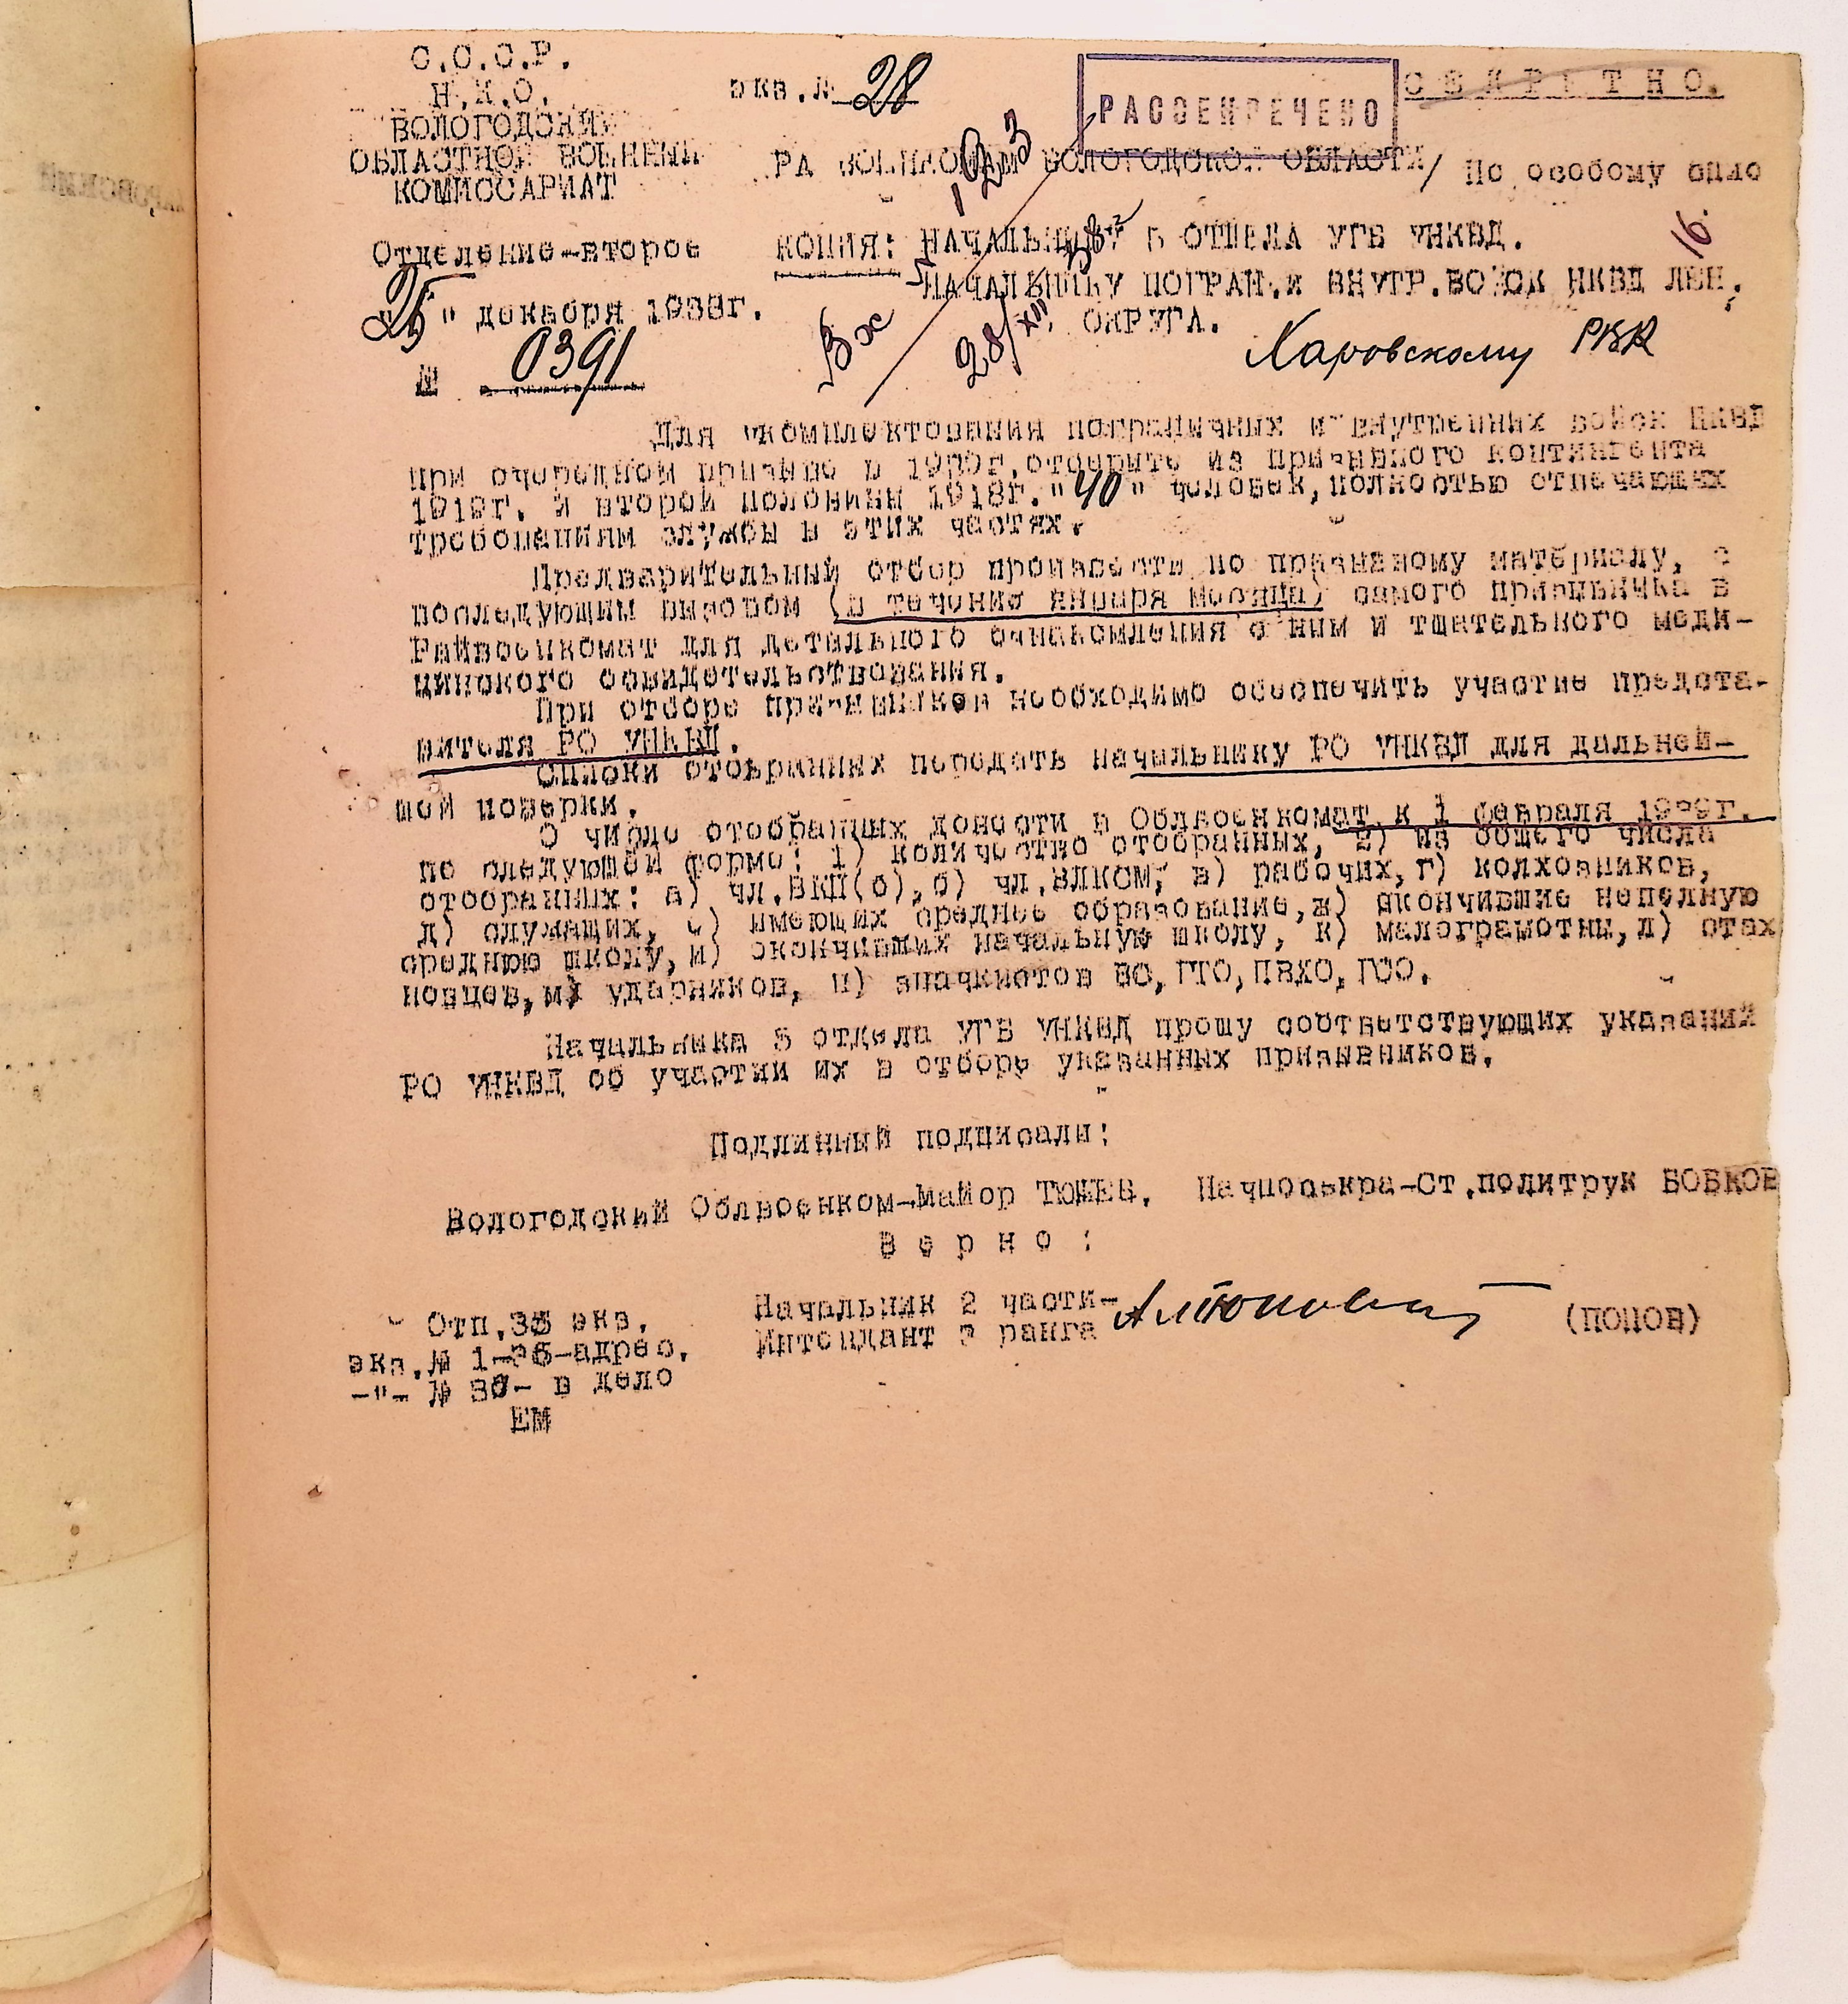 С.С.С.Р.
Н.К.О.
ВОЛОГОДСКИЙ
ОБЛАСТНОЙ ВОЕННЫЙ
КОМИССАРИАТ
экз.№ 28
РАССЕКРЕЧЕНО
СЕКРЕТНО.
РАЙВОЕНКОМАМ ВОЛОГОДСКОЙ ОБЛАСТИ/ По особому
Отделение-второе
"25" декабря 1938г.
№ 0391
КОПИЯ: НАЧАЛЬНИКУ 5 ОТДЕЛА УГБ УНКВД.
НАЧАЛЬНИКУ ПОГРАН.И ВНУТР.ВОЙСК НКВД ЛЕН.
ОКРУГА.
16.
Вх
28/XII
Харовскому РВК
Для укомплектования пограничных и внутренних войск НКВД
при очередном призыве в 1939г.отберите из призывного контингента
1919г. и второй половины 1918г. "40" человек,полностью отвечающих
требованиям службы в этих частях.
Предварительный отбор произвести по призывному материалу, с
последующим вызовом (в течение января месяца) самого призывника в
Райвоенкомат для детального ознакомления с ним и тщательного меди-
цинского освидетельствования.
При отборе призывников необходимо обеспечить участие предста-
вителя РО УНКВД.
Списки отобранных передать начальнику РО УНКВД для дальней-
шей поверки.
О числе отобранных донести в Облвоенкомат к 1 февраля 1939г.
по следующей форме: 1) количество отобранных, 2) из общего числа
отобранных: а) чл.ВКП(б),б) чл.ВЛКСМ, в) рабочих,г) колхозников,
д) служащих, е) имеющих среднее образование,ж) окончившие неполную
среднюю школу,и) окончивших начальную школу, к) малограмотны,л) стах
новцев,м) ударников, н) значкистов ВС,ГТО,ПВХО,ГСО.
Начальника 5 отдела УГБ УНКВД прошу соответствующих указаний
РО УНКВД об участии их в отборе указанных призывников.
Подлинный подписали:
Вологодский Облвоенком-майор ТЮШЕВ. Ст.политрук БОБКОВ
Верно:
Начальник 2 части-
Интендант 3 ранга (ПОПОВ)
Отп. экз.
экз.№ 1-36-адрес.
-"- № 37- в дело
ЕМ